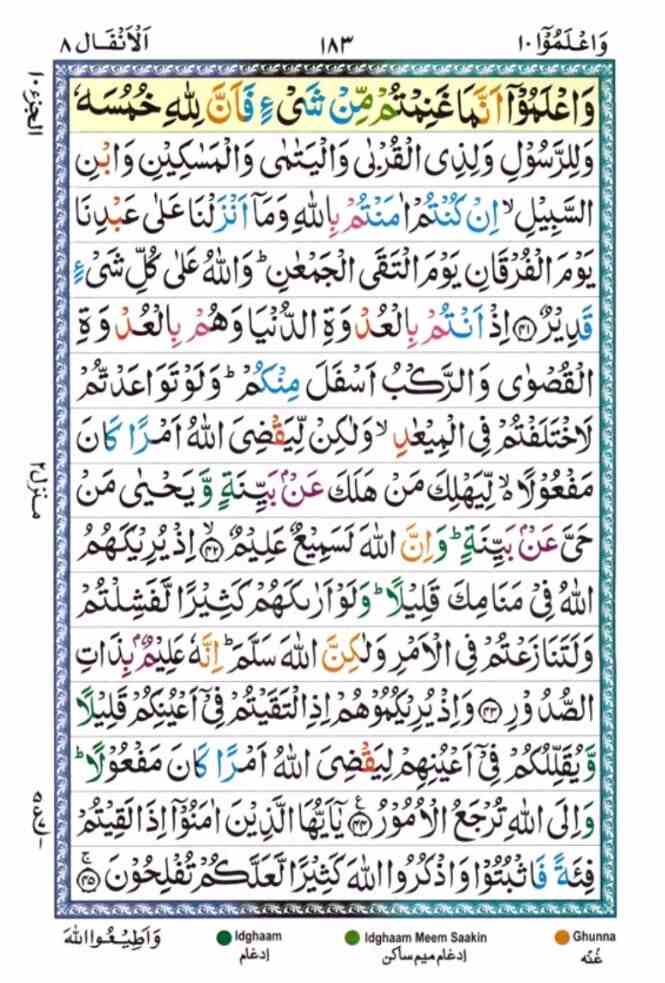 وَاعْلَمُوْٓا ١٠
١٨٣
اَلْاَنْفَال ٨
الجزء ١٠
وَاعْلَمُوْٓا اَنَّمَا غَنِمْتُمْ مِّنْ شَىْءٍ فَاَنَّ لِلّٰهِ خُمُسَهٗ
وَلِلرَّسُوْلِ وَلِذِى الْقُرْبٰى وَالْيَتٰمٰى وَالْمَسٰكِيْنِ وَابْنِ
السَّبِيْلِ ۙ اِنْ كُنْتُمْ اٰمَنْتُمْ بِاللّٰهِ وَمَآ اَنْزَلْنَا عَلٰى عَبْدِنَا
يَوْمَ الْفُرْقَانِ يَوْمَ الْتَقَى الْجَمْعٰنِ ؕ وَاللّٰهُ عَلٰى كُلِّ شَىْءٍ
قَدِيْرٌ ﴿۴۱﴾ اِذْ اَنْتُمْ بِالْعُدْوَةِ الدُّنْيَا وَهُمْ بِالْعُدْوَةِ
الْقُصْوٰى وَالرَّكْبُ اَسْفَلَ مِنْكُمْ ؕ وَلَوْ تَوَاعَدْتُّمْ
لَاخْتَلَفْتُمْ فِى الْمِيْعٰدِ ۙ وَلٰكِنْ لِّيَقْضِىَ اللّٰهُ اَمْرًا كَانَ
مَفْعُوْلًا ۙ لِّيَهْلِكَ مَنْ هَلَكَ عَنْۢ بَيِّنَةٍ وَّيَحْيٰى مَنْ
حَىَّ عَنْۢ بَيِّنَةٍ ؕ وَاِنَّ اللّٰهَ لَسَمِيْعٌ عَلِيْمٌ ۙ ﴿۴۲﴾ اِذْ يُرِيْكَهُمُ
اللّٰهُ فِىْ مَنَامِكَ قَلِيْلًا ؕ وَلَوْ اَرٰىكَهُمْ كَثِيْرًا لَّفَشِلْتُمْ
وَلَتَنَازَعْتُمْ فِى الْاَمْرِ وَلٰكِنَّ اللّٰهَ سَلَّمَ ؕ اِنَّهٗ عَلِيْمٌۢ بِذَاتِ
الصُّدُوْرِ ﴿۴۳﴾ وَاِذْ يُرِيْكُمُوْهُمْ اِذِ الْتَقَيْتُمْ فِىْٓ اَعْيُنِكُمْ قَلِيْلًا
وَّيُقَلِّلُكُمْ فِىْٓ اَعْيُنِهِمْ لِيَقْضِىَ اللّٰهُ اَمْرًا كَانَ مَفْعُوْلًا ؕ
وَاِلَى اللّٰهِ تُرْجَعُ الْاُمُوْرُ ﴿۴۴﴾ يٰۤاَيُّهَا الَّذِيْنَ اٰمَنُوْٓا اِذَا لَقِيْتُمْ
فِئَةً فَاثْبُتُوْا وَاذْكُرُوا اللّٰهَ كَثِيْرًا لَّعَلَّكُمْ تُفْلِحُوْنَ ۚ ﴿۴۵﴾
منزل ٢
وَاَطِيْعُوا اللّٰهَ
Idghaam
إدغام
Idghaam Meem Saakin
إدغام ميم ساكن
Ghunna
غُنّه